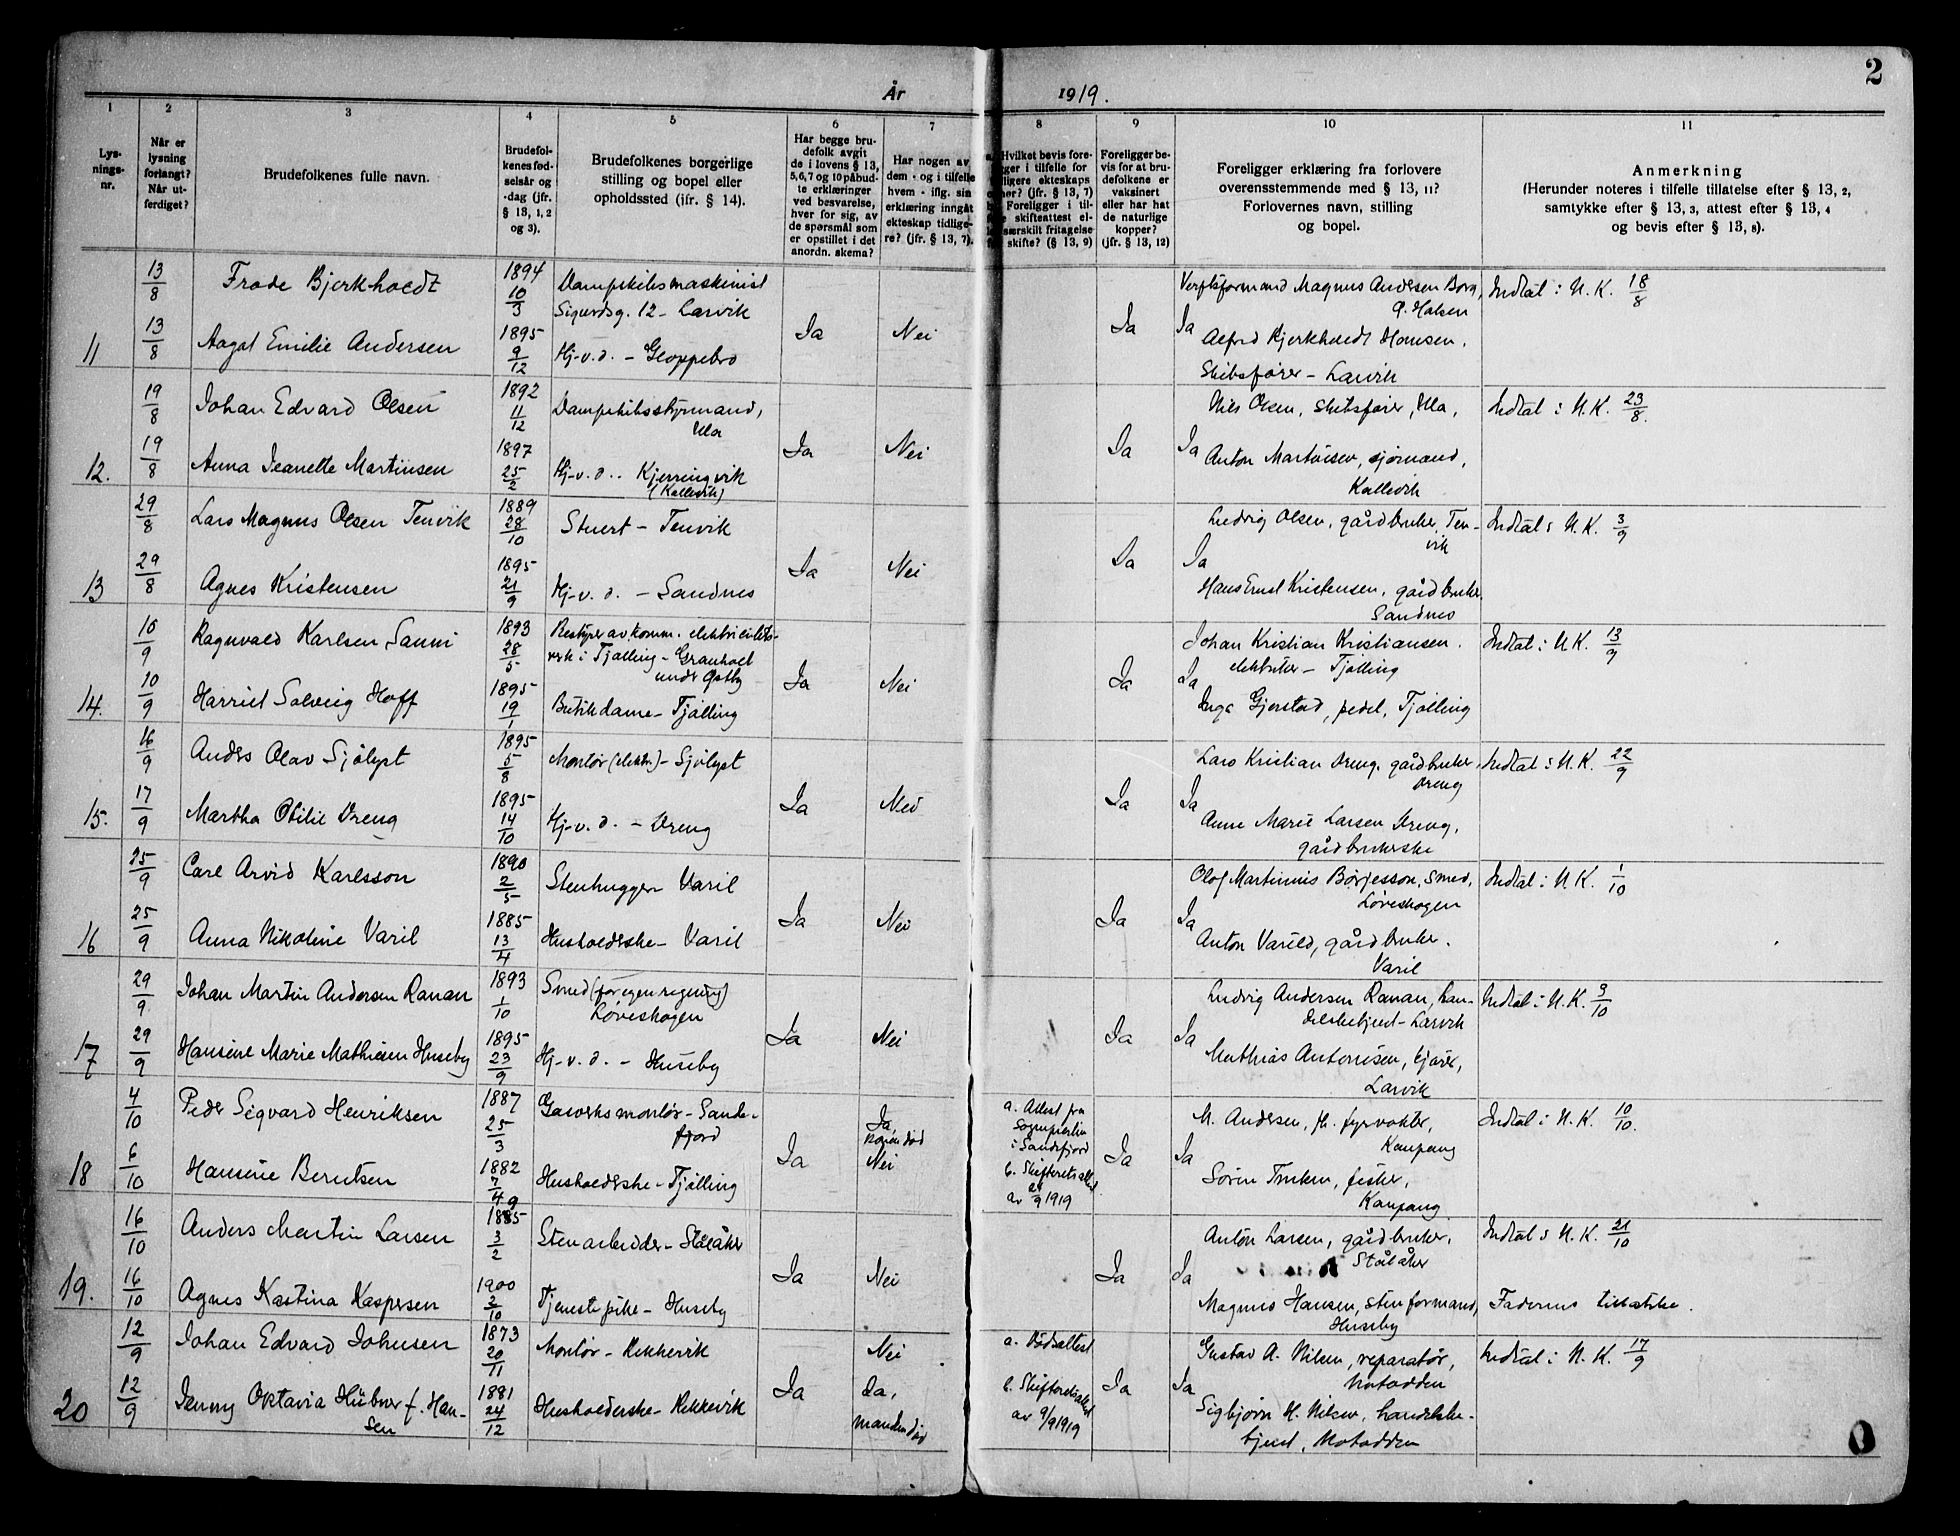 2
År 1919.
1 2 3 4 5 6 7 8 9 10 11
Lys-
nings-
nr.
Når er
lysning
forlangt?
Når ut-
ferdiget?
Brudefolkenes fulle navn.
Brudefol-
kenes fød-
selsår og
-dag (jfr.
§ 13, 1, 2
og 3).
Brudefolkenes borgerlige
stilling og bopel eller
opholdssted (jfr. § 14).
Har begge bru-
defolk avgit
de i lovens § 13,
5, 6, 7 og 10 påbud-
te erklæringer
ved besvarelse,
hver for sig, av
de spørsmål som
er opstillet i det
anordn. skema?
Har nogen av
dem - og i tilfelle
hvem - iflg. sin
erklæring inngåt
ekteskap tidlige-
re? (jfr. § 13, 7).
Hvilket bevis fore-
ger i tilfelle for
ligere ekteskaps
her? (jfr. § 13, 7)
Foreligger i til-
le skifteattest el-
særskilt fritagelse
skifte? (§ 13, 9)
Foreligger be-
vis for at bru-
defolkene er
vaksinert
eller har hat
de naturlige
kopper?
(jfr. § 13, 12)
Foreligger erklæring fra forlovere
overensstemmende med § 13, 11?
Forlovernes navn, stilling
og bopel.
Anmerkning
(Herunder noteres i tilfelle tillatelse efter § 13, 2,
samtykke efter § 13, 3, attest efter § 13, 4
og bevis efter § 13, 8).
13/8 Frode Bjerkholdt 1894 10/3 Dampskibsmaskinist
Sigurdsg. 12 - Larvik
Verftsformand Magnus Andersen Borg,
Ø. Halsen
Indtal i N. K. 18/8
11 13/8 Aagot Emilie Andersen 1895 9/12 Hj-v. d. - Gloppebro Ja Nei Ja Ja
Alfred Bjerkholdt Hansen,
Skibsfører - Larvik
19/8 Johan Edvard Olsen 1892 11/12 Dampskibsstyrmand,
Ula
Nils Olsen, skibsfører, Ula,
Indtal i N. K. 23/8.
12. 19/8 Anna Jeanette Martinsen 1897 25/2 Hj-v. d. - Kjerringvik
(Kallevik)
Ja Nei Ja Ja
Anton Martinsen, sjømand,
Kallevik
29/8 Lars Magnus Olsen Tenvik 1889 28/10 Stuert - Tenvik
Ludvig Olsen, gårdbruker, Ten-
vik
Indtal i N. K. 3/9
13 29/8 Agnes Kristensen 1895 21/9 Hj-v. d. - Sandnes Ja Nei Ja Ja
Hans Ernst Kristensen, gårdbruker,
Sandnes
10/9 Ragnvald Karlsen Sanni 1893 28/5 Bestyrer av komm. elektricitets-
verk i Tjølling - Granholt
under Østby
Johan Kristian Kristiansen.
elektriker - Tjølling
Indtal i N. K. 13/9
14. 10/9 Harriet Solveig Hoff 1895 19/1 Butikdame - Tjølling Ja Nei Ja Ja
Inga Gjerstad, pedel, Tjølling
16/9 Anders Olav Sjølyst 1895 5/8 Montør (elektr.) - Sjølyst
Lars Kristian Vreng, gårdbruker,
Vreng
Indtal i N. K. 22/9
15. 17/9 Martha Otilie Vreng 1895 14/10 Hj-v. d. - Vreng Ja Nei Ja Ja
Anne Marie Larsen Vreng,
gårdbrukerske
25/9 Carl Arvid Karlsson 1890 2/5 Stenhugger Varil
Olof Martinius Börjesson, smed,
Løveskogen
Indtal i N. K. 1/10
16 25/9 Anna Nikoline Varil 1885 13/4 Husholderske - Varil Ja Nei Ja Ja
Anton Varild, gårdbruker.
Varil
29/9 Johan Martin Andersen Ranan 1893 1/10 Smed (for egen regning)
Løveskogen
Ludvig Andersen Ranan, han-
delsbetjent - Larvik
Indtal i N. K. 9/10
17 29/9 Hansine Marie Mathisen Huseby 1895 23/9 Hj-v. d. - Huseby Ja Nei Ja Ja
Mathias Antonisen, kjører,
Larvik
4/10 Peder Sigvard Henriksen 1887 25/3 Gasverksmontør - Sande-
fjord
Ja
konen død
a. Attest fra
Sognepresten
i Sandefjord
M. Andersen, fh. fyrvokter,
Kaupang
Indtal i N. K. 10/10.
18 6/10 Hansine Berntsen 1882 7/4 Husholderske - Tjølling Ja Nei
b. Skifteretsattest
av 24/9 1919
Ja Ja
Søren Trulsen, fisker,
Kaupang
16/10 Anders Martin Larsen 1885 9 3/2 Stenarbeider - Ståläker
Anton Larsen, gårdbruker,
Stålåker
Indtal i N. K. 21/10
19. 16/10 Agnes Kastina Kaspersen 1900 2/10 Tjenestepike - Huseby Ja Nei Ja Ja
Magnus Hansen, stenformand,
Huseby
Faderens tillatelse.
12/9 Johan Edvard Johnsen 1873 20/11 Montør - Rekkevik Nei
a. Dødsattest
Gustav A. Nilsen, reparatør,
Notodden
Indtal i N. K. 17/9
20 12/9 Jenny Oktavia Hübner f. Han-
sen
1881 24/12 Husholderske - Rekkevik Ja Ja,
manden død
b. Skifteretsattest
av 9/9 1919
Ja Ja
Sigbjørn H. Nilsen, handelsbe-
tjent, Notodden